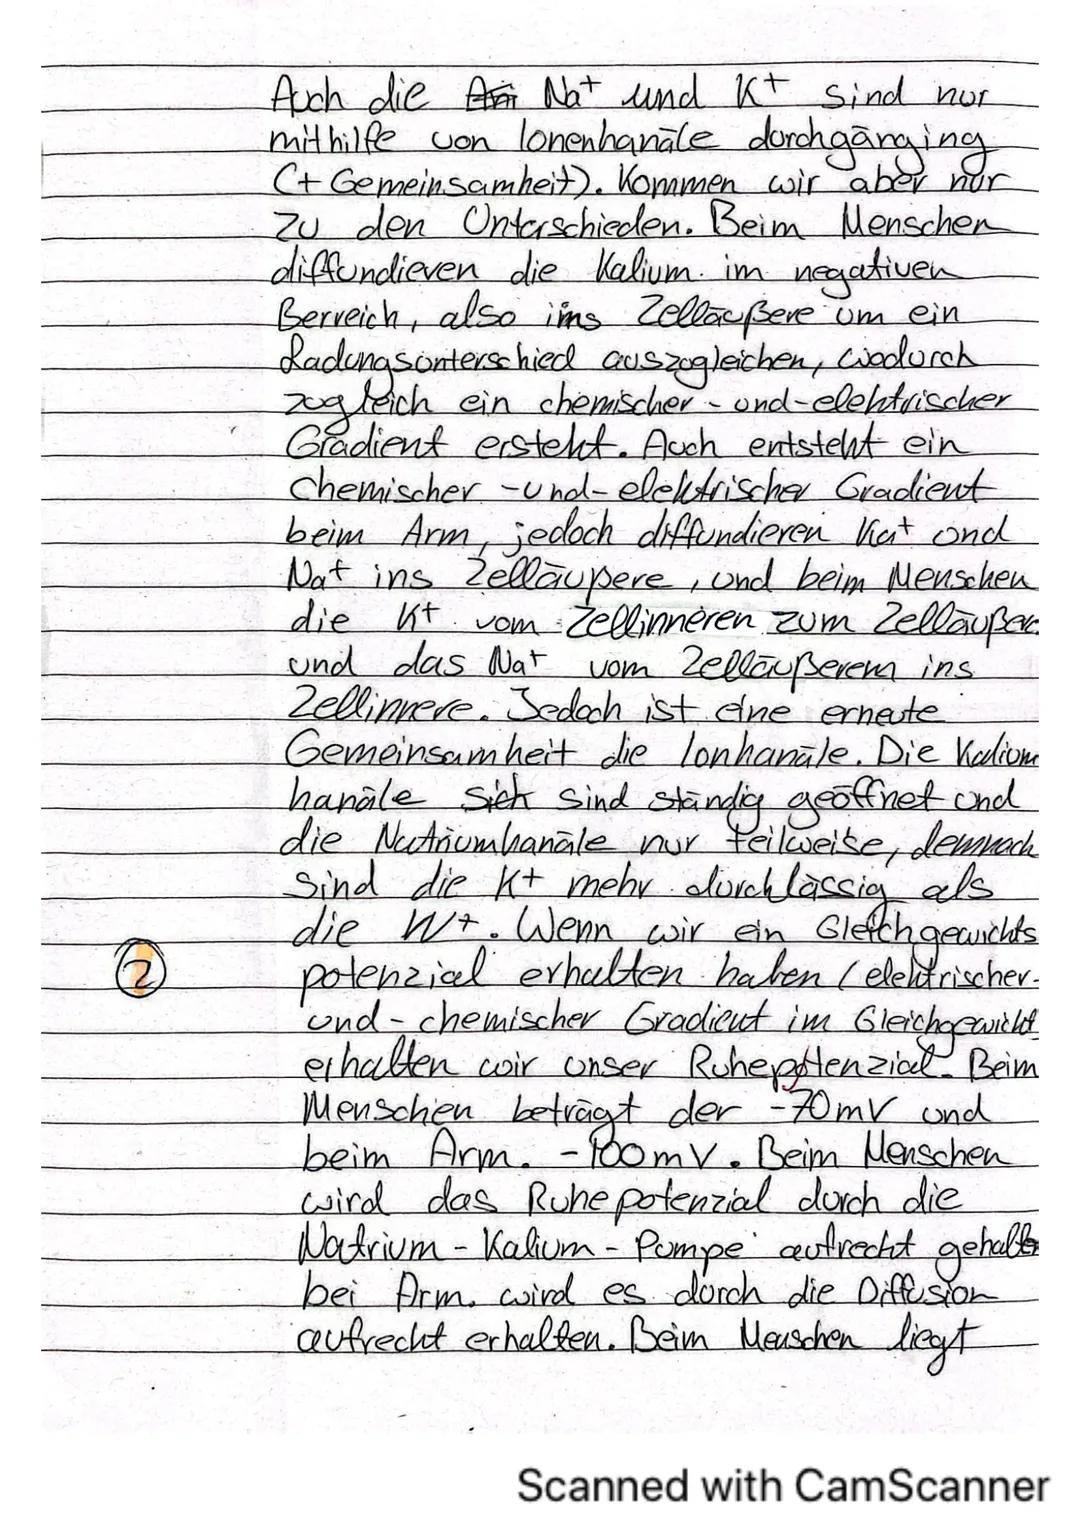 Auch die Na+ und K+ sind nur
mithilfe von Ionenkanäle durchgänging
(+ Gemeinsamkeit). Kommen wir aber nur
zu den Unterschieden. Beim Menschen
diffundieren die Kalium im negativen
Berreich, also ins Zelläußere um ein
Ladungsunterschied auszugleichen, wodurch
zugleich ein chemischer-und-elektrischer
Gradient ersteht. Auch entsteht ein
chemischer-und-elektrischer Gradient
beim Arm, jedoch diffundieren Ka+ und
Na+ ins Zelläußere, und beim Menschen
die K+ vom Zellinneren zum Zelläußere
und das Na+ vom Zelläußerem ins
Zellinnere. Jedoch ist eine erneute
Gemeinsamkeit die Ionkanäle. Die Kalium
kanäle sind ständig geöffnet und
die Natriumkanäle nur teilweise, demnach
sind die K+ mehr durchlässig als
die N+. Wenn wir ein Gleichgewichts
2 potenzial erhalten haben (elektrischer-
und-chemischer Gradient im Gleichgewicht
erhalten wir unser Ruhepotenzial. Beim
Menschen beträgt der -70mV und
beim Arm. -100mV. Beim Menschen
wird das Ruhepotenzial durch die
Natrium-Kalium-Pumpe aufrecht gehalten
bei Arm. wird es durch die Diffusion
aufrecht erhalten. Beim Menschen liegt
Scanned with CamScanner